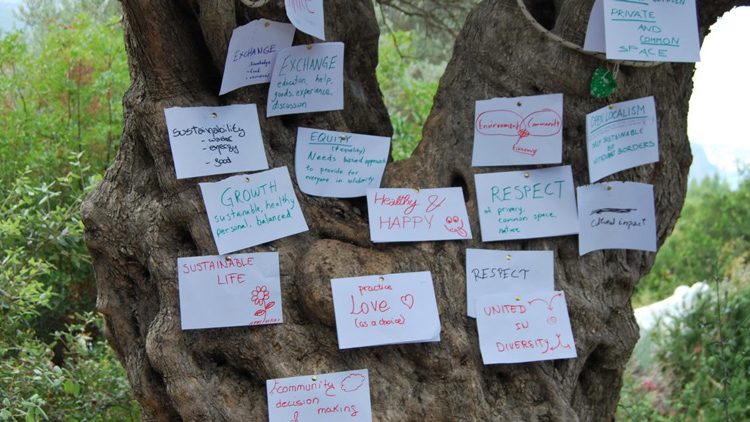 EXCHANGE
- knowledge
- food
EXCHANGE
education, help,
goods, experience,
discussion
BETWEEN
PRIVATE
AND
COMMON
SPACE
Sustainability
- water
- energy
- food
EQUITY
(≠ equality)
Needs based approach
to provide for
everyone in solidarity
Environment
Community
Economy
OPEN LOCALISM
SELF SUSTAINABLE
WITHOUT BORDERS
GROWTH
sustainable, healthy
personal, balanced
Healthy &
HAPPY
RESPECT
of privacy,
common space,
nature
Cultural impact
SUSTAINABLE
LIFE
practice
Love
(as a choice)
RESPECT
UNITED IN
DIVERSITY
community
decision
making